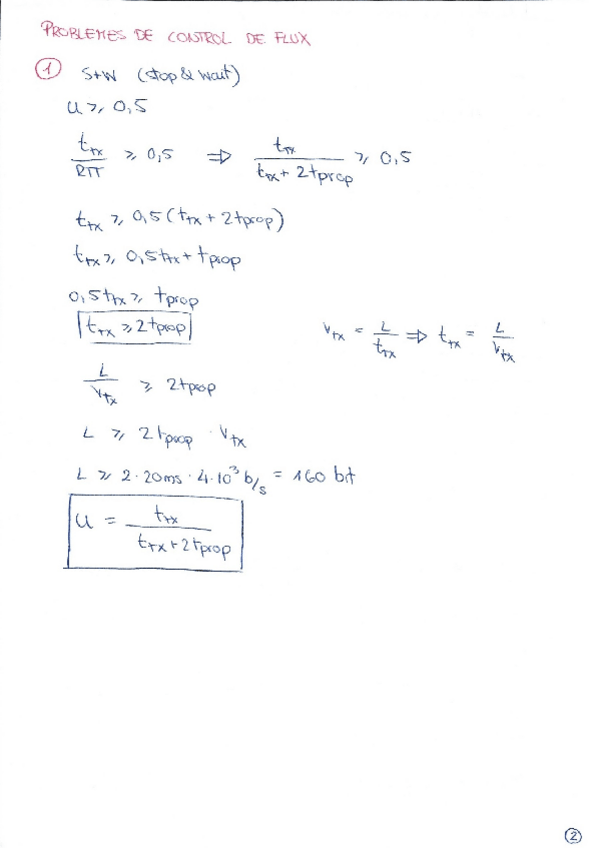 PROBLEMES DE CONTROL DE FLUX
1 S+W (stop & wait)
U ≥ 0,5
t_tx / RTT ≥ 0,5 ⇒ t_tx / (t_tx + 2tprop) ≥ 0,5
t_tx ≥ 0,5 (t_tx + 2tprop)
t_tx ≥ 0,5t_tx + tprop
0,5t_tx ≥ tprop
t_tx ≥ 2tprop
V_tx = L / t_tx ⇒ t_tx = L / V_tx
L / V_tx ≥ 2tprop
L ≥ 2tprop · V_tx
L ≥ 2·20ms·4·10³ b/s = 160 bit
U = t_tx / (t_tx + 2tprop)
2